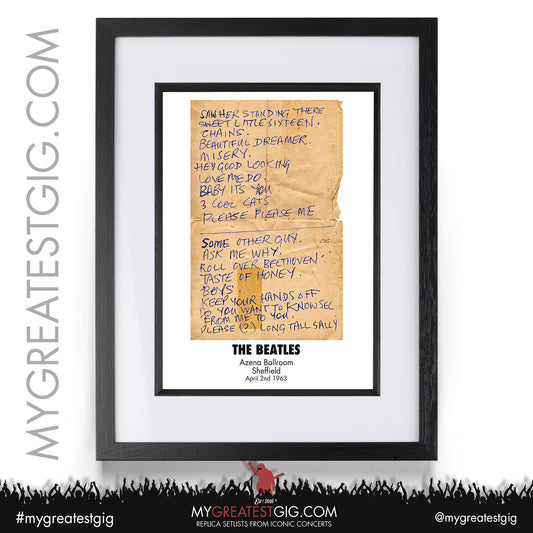 MYGREATESTGIG.COM
SAW HER STANDING THERE
SWEET LITTLE SIXTEEN.
CHAINS.
BEAUTIFUL DREAMER.
MISERY.
HEY GOOD LOOKING
LOVE ME DO.
BABY ITS YOU.
3 COOL CATS
PLEASE PLEASE ME
SOME OTHER GUY.
ASK ME WHY.
ROLL OVER BEETHOVEN.
TASTE OF HONEY
BOYS
KEEP YOUR HANDS OFF
DO YOU WANT TO KNOW SEC
FROM ME TO YOU.
PLEASE (?) LONG TALL SALLY
THE BEATLES
Azena Ballroom
Sheffield
April 2nd 1963
EST 2016
#mygreatestgig
MYGREATESTGIG.COM
REPLICA SETLISTS FROM ICONIC CONCERTS
@mygreatestgig